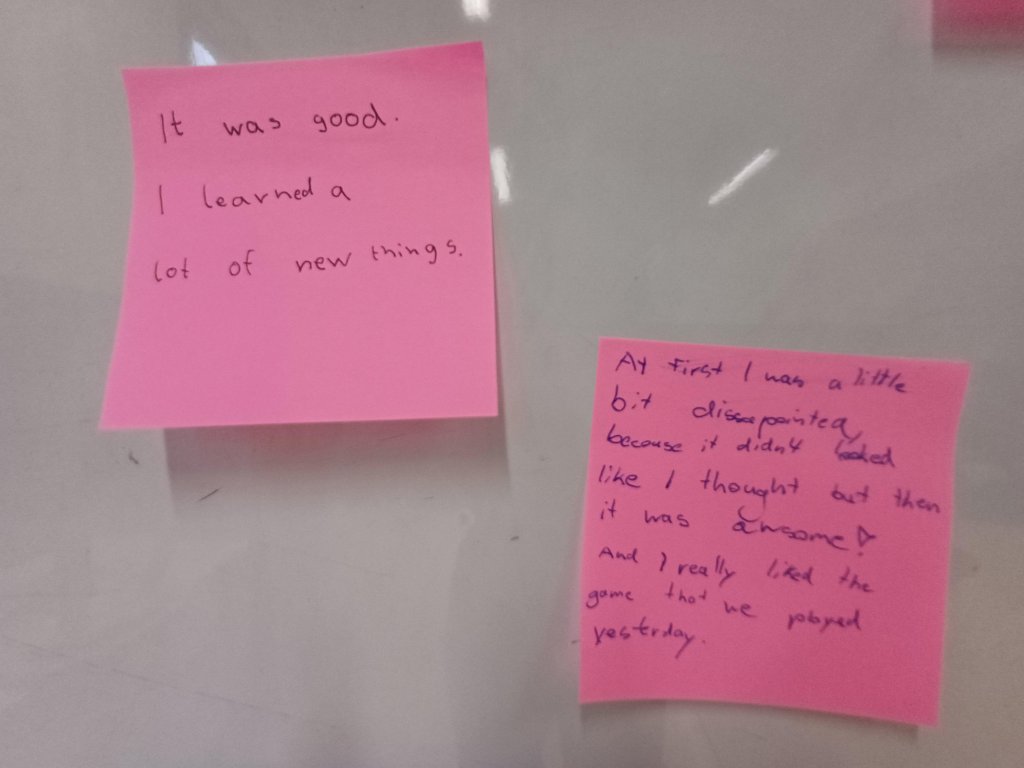 It was good.
I learned a
lot of new things.
At first I was a little
bit dissapointed,
because it didn't looked
like I thought but then
it was awsome!
And I really liked the
game that we played
yesterday.